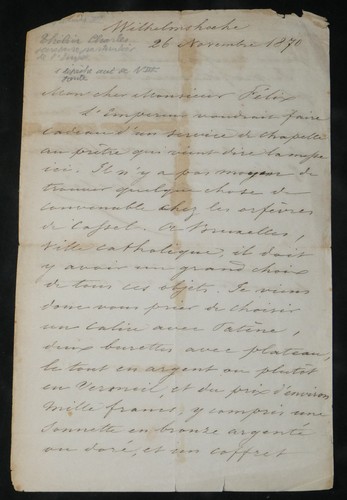 Wilhelmshoehe
26 Novembre 1870
Mon cher Monsieur Félix
L'Empereur voudrait faire
cadeau d'un service de chapelle
au prêtre qui vient dire la messe
ici. Il n'y a pas moyen de
trouver quelque chose de
convenable chez les orfèvres
de Cassel. A Bruxelles,
ville catholique, il doit
y avoir un grand choix
de tous ces objets. Je viens
donc vous prier de choisir
un calice avec Patène,
deux burettes avec plateau,
le tout en argent ou plutôt
en Vermeil, et du prix d'environ
Mille francs, y compris une
sonnette en bronze argenté
ou doré, et un coffret